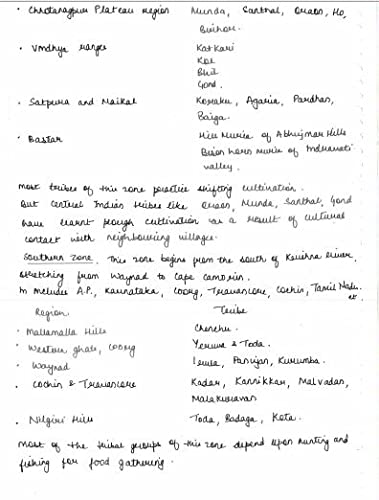 • Chotanagpur Plateau region Munda, Santhal, Oraon, Ho,
Birhor.
• Vindhya ranges Katkari
Kol
Bhil
Gond.
• Satpura and Maikal Korku, Agaria, Pardhan,
Baiga.
• Bastar Hill Muria of Abhujmar Hills
Bison horn muria of Indravati
valley.
most tribes of this zone practice shifting cultivation.
But central Indian tribes like Oraon, Munda, Santhal, Gond
have learnt plough cultivation as a result of cultural
contact with neighbouring villages.
Southern zone. This zone begins from the south of Krishna River,
stretching from Waynad to Cape Comorin.
It includes A.P., Karnataka, Coorg, Travancore, Cochin, Tamil Nadu
etc
Region Tribe
• Mallamalla Hills Chenchu.
• Western ghats, Coorg Yeruva & Toda.
• Waynad Irula, Paniyan, Kurumba.
• Cochin & Travancore Kadar, Kannikkar, Malvadan,
Malakuravan
• Nilgiri Hills Toda, Badaga, Kota.
most of the tribal groups of this zone depend upon hunting and
fishing for food gathering.